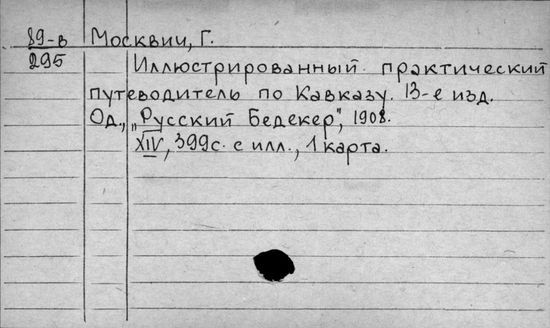 89-в Москвич, Г.
295 Иллюстрированный практический
путеводитель по Кавказу. 13-е изд.
Од., „Русский Бедекер", 1908.
XIV, 399с. с илл., 1 карта.